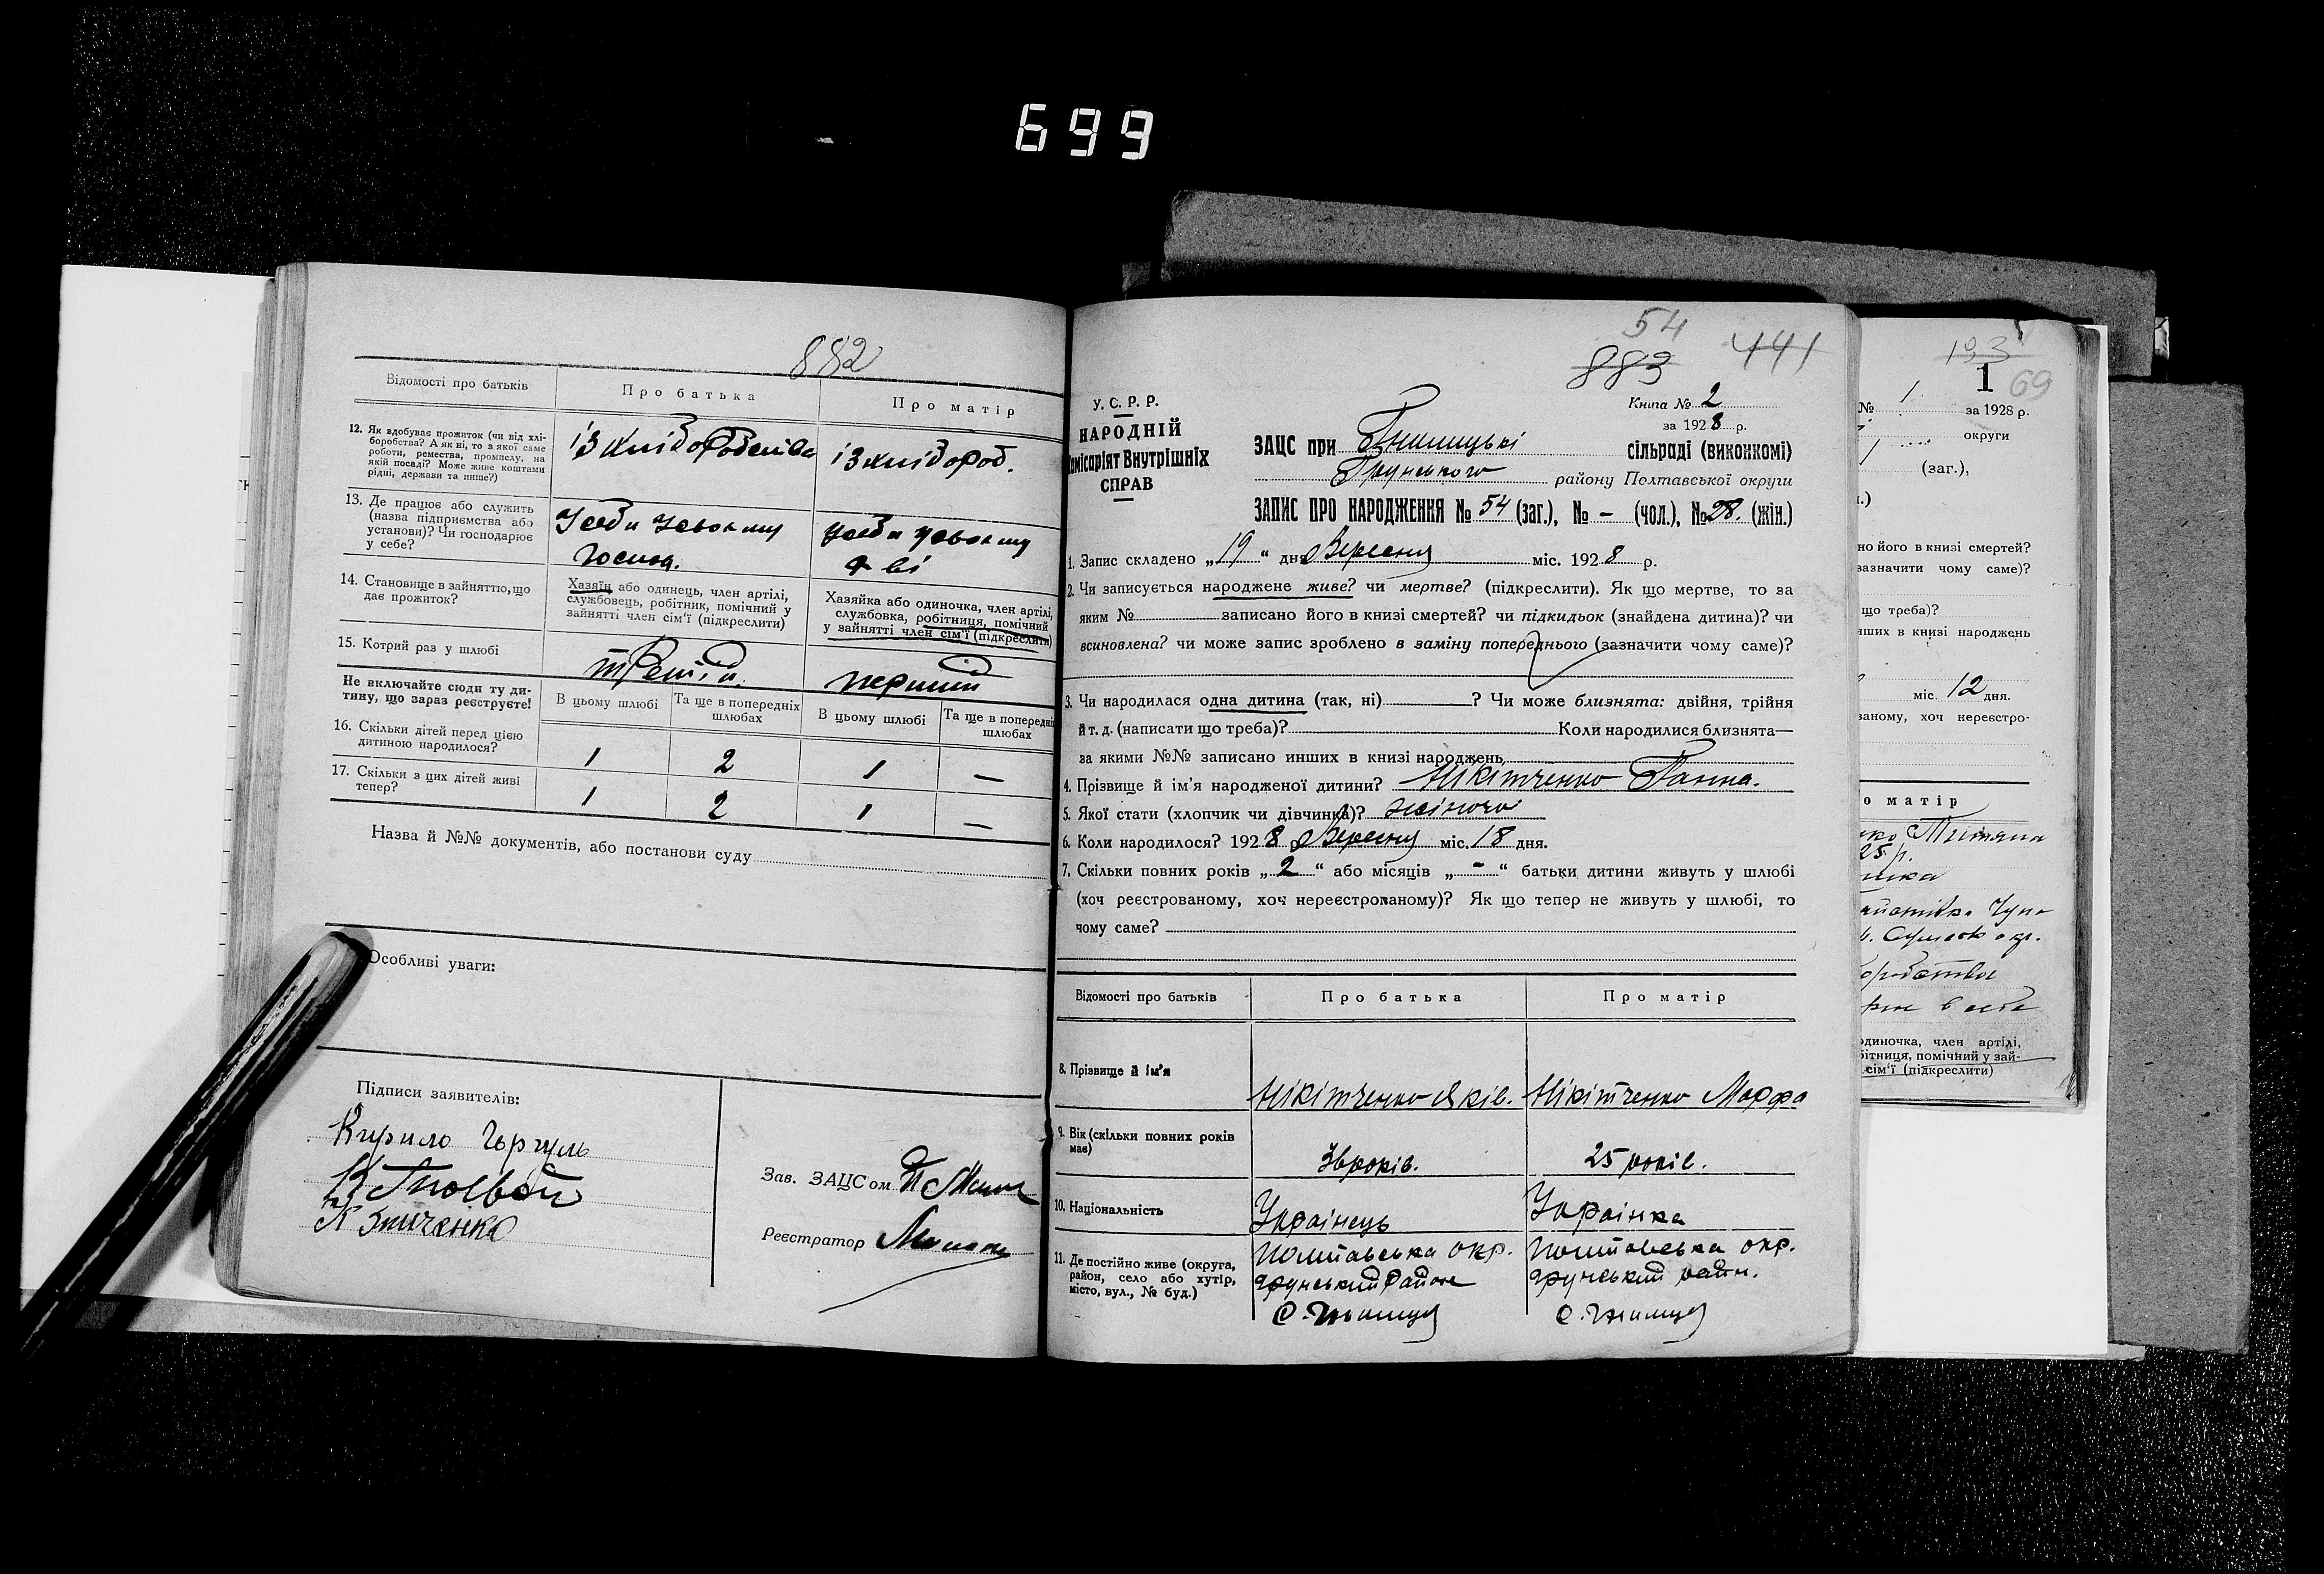 699
882
Відомості про батьків
Про батька
Про матір
12. Як здобуває прожиток (чи від хлі-
боробства? А як ні, то з якої саме
роботи, ремества, промислу, на
якій посаді? Може живе коштами
рідні, держави та инше?)
із хліборобства
із хлібороб.
13. Де працює або служить
(назва підприємства або
установи)? Чи господарює
у себе?
У себе у своєму
госпо.
у себе у своєму
14. Становище в зайняттю, що
дає прожиток?
Хазяїн або одинець, член артілі,
службовець, робітник, помічний у
зайнятті член сім'ї (підкреслити)
Хазяйка або одиночка, член артілі,
службовка, робітниця, помічний
у зайнятті член сім'ї (підкреслити)
15. Котрий раз у шлюбі
третій.
перший
Не включайте сюди ту ди-
тину, що зараз реєструєте!
В цьому шлюбі
Та ще в попередніх
шлюбах
В цьому шлюбі
Та ще в попередніх
шлюбах
16. Скільки дітей перед цією
дитиною народилося?
1 2 1 —
17. Скільки з цих дітей живі
тепер?
1 2 1 —
Назва й №№ документів, або постанови суду
Особливі уваги:
Підписи заявителів:
Кирило
Зав. ЗАЦСом
Реєстратор
54
883 441
У. С. Р. Р.
НАРОДНІЙ
Комісаріят Внутрішніх
СПРАВ
Книга № 2
за 1928 р.
ЗАЦС при Гнилицькі сільраді (виконкомі)
Грунського району Полтавської округи
ЗАПИС ПРО НАРОДЖЕННЯ № 54 (заг.), № - (чол.), № 28. (жін.)
1. Запис складено „19“ дн Вересня міс. 1928 р.
2. Чи записується народжене живе? чи мертве? (підкреслити). Як що мертве, то за
яким № записано його в книзі смертей? чи підкидьок (знайдена дитина)? чи
всиновлена? чи може запис зроблено в заміну попереднього (зазначити чому саме)?
3. Чи народилася одна дитина (так, ні) ? Чи може близнята: двійня, трійня
й т. д. (написати що треба)? Коли народилися близнята—
за якими №№ записано инших в книзі народжень
4. Прізвище й ім'я народженої дитини? Нікітченко Ганна.
5. Якої стати (хлопчик чи дівчинка)? жіночо
6. Коли народилося? 1928 р Вересня міс. 18 дня.
7. Скільки повних років „2“ або місяців „-“ батьки дитини живуть у шлюбі
(хоч реєстрованому, хоч нереєстрованому)? Як що тепер не живуть у шлюбі, то
чому саме?
Відомості про батьків
Про батька
Про матір
8. Прізвище й ім'я
Нікітченко Яків.
Нікітченко Марфа
9. Вік (скільки повних років
має)
36 років.
25 років.
10. Національність
Українець
Українка
11. Де постійно живе (округа,
район, село або хутір,
місто, вул., № буд.)
Полтавська окр.
грунський район
с. Гнилиця
Полтавська окр.
грунський район.
с. Гнилиця
193
1 69
№ 1 за 1928 р.
округи
(заг.),
но його в книзі смертей?
зазначити чому саме)?
що треба)?
нших в книзі народжень
міс. 12 дня.
ваному, хоч нереєстро-
о матір
25 р.
одиночка, член артілі,
бітниця, помічний у зай-
сім'ї (підкреслити)